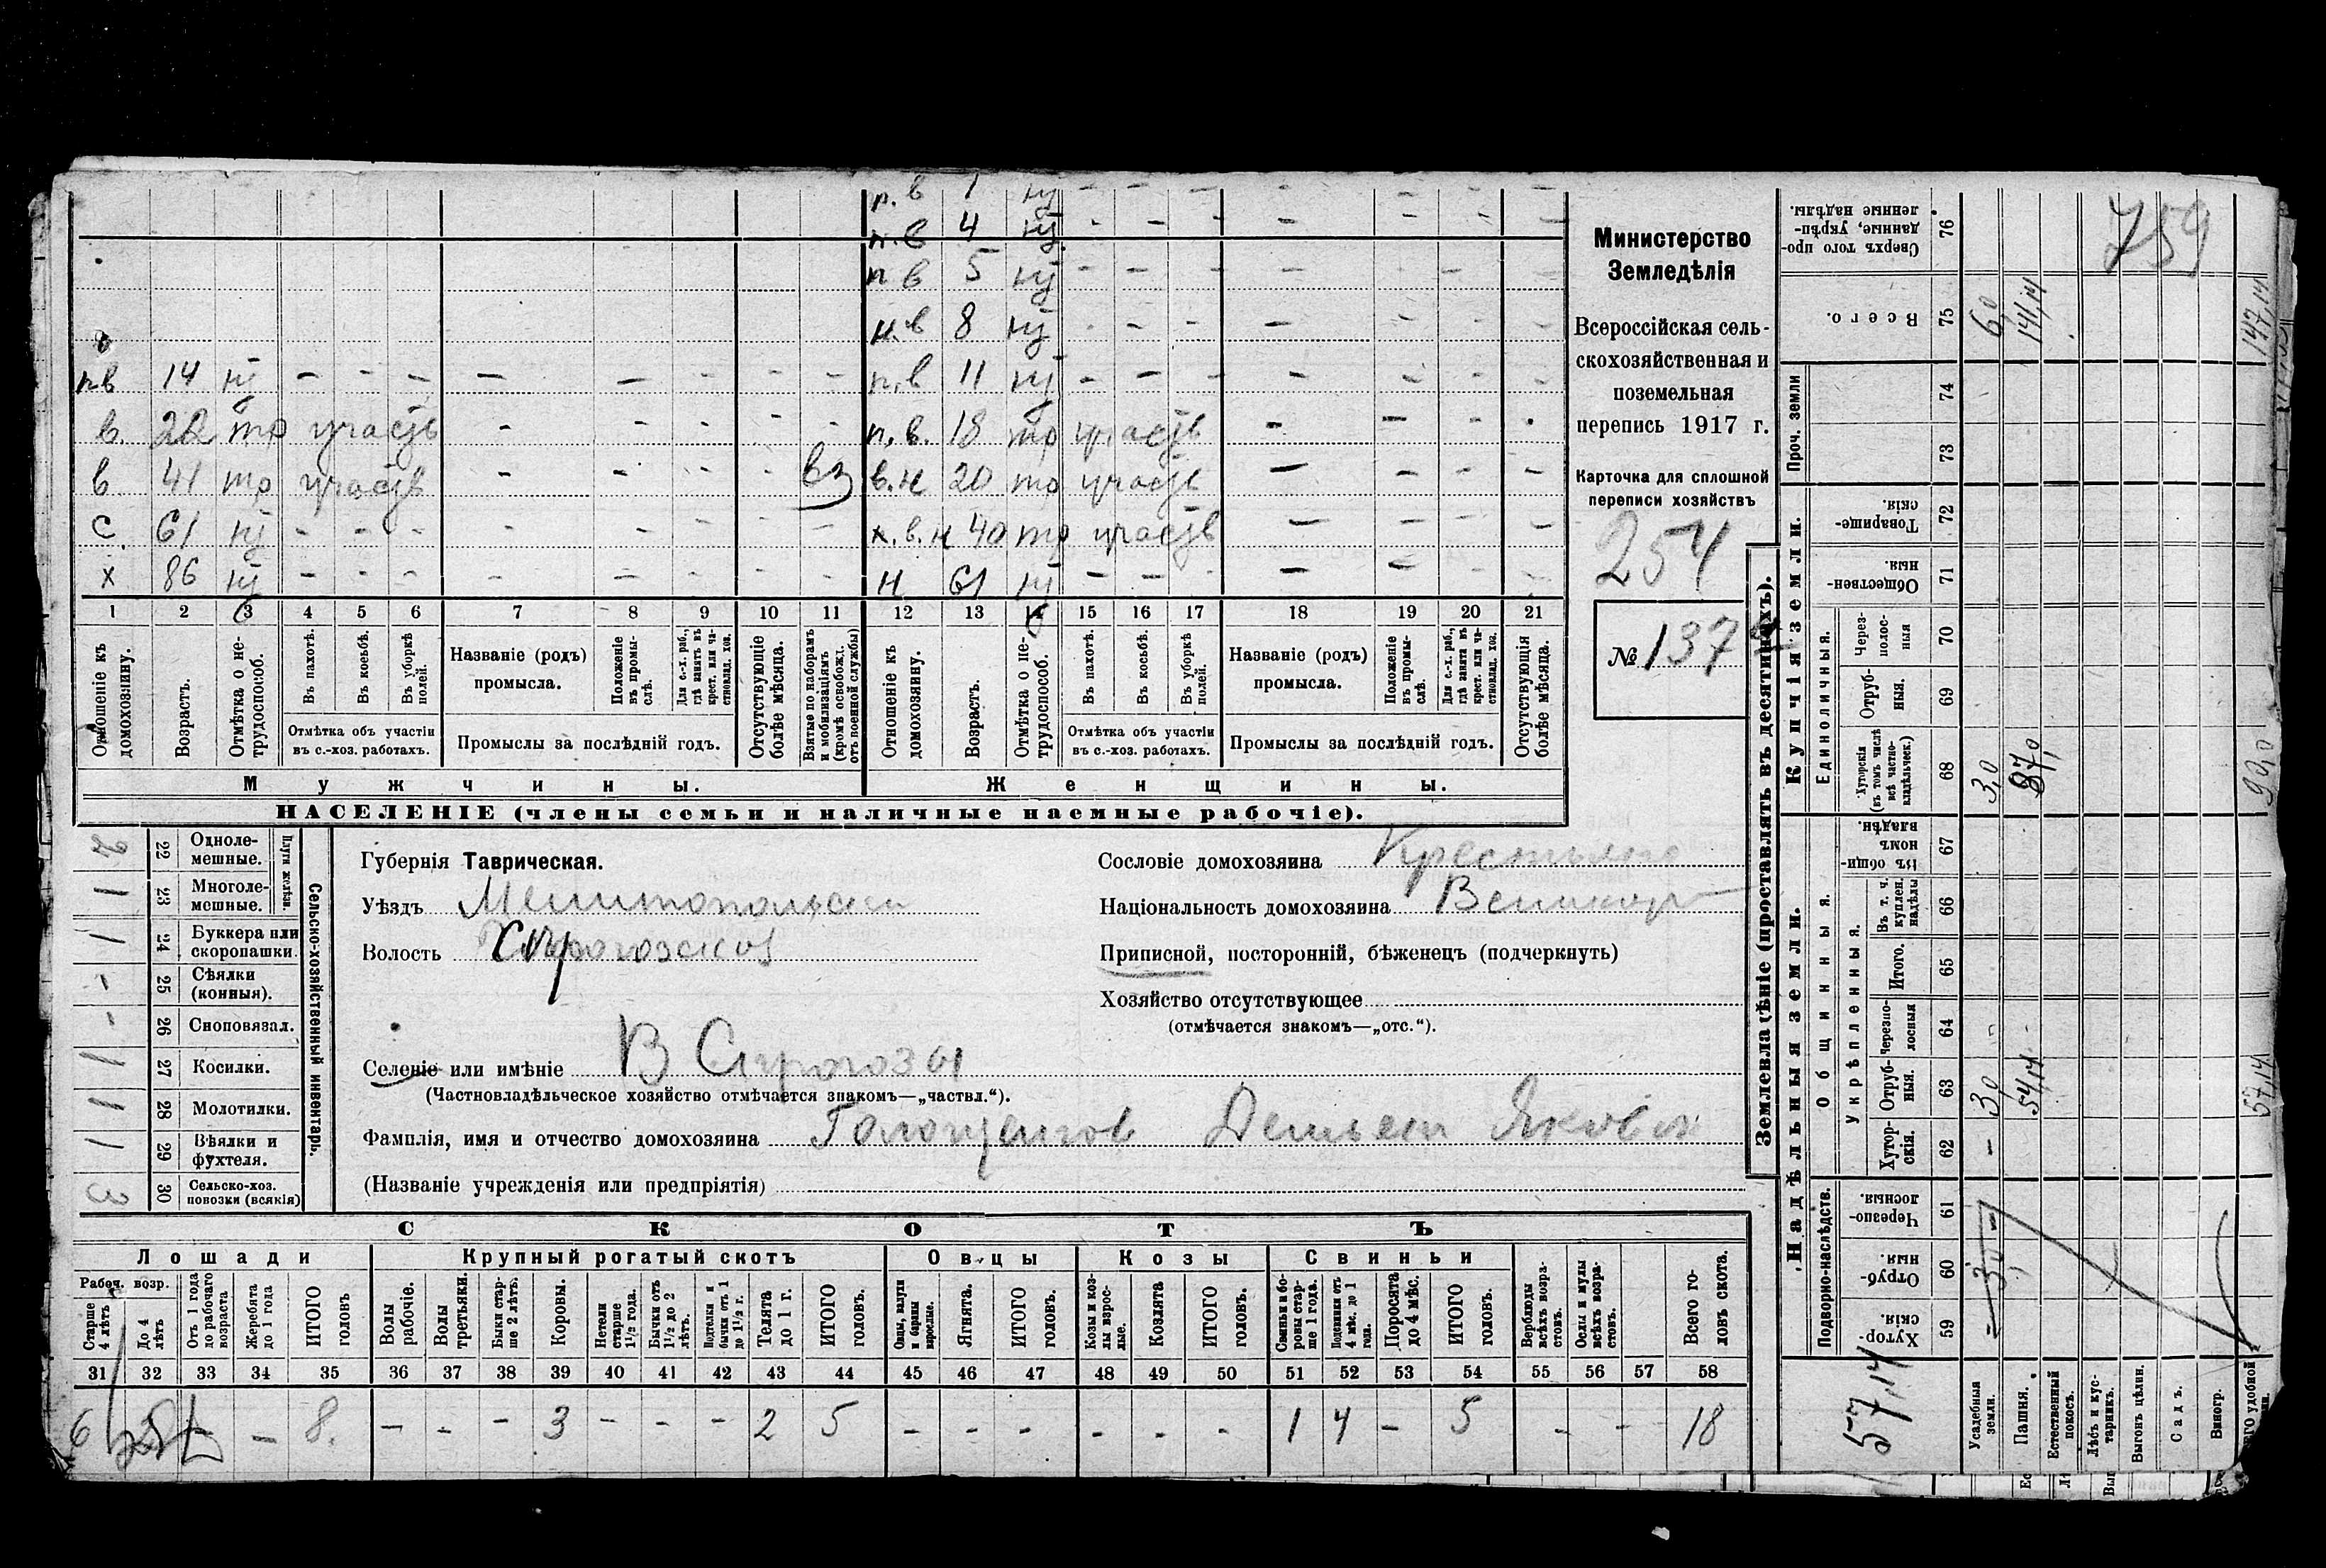 п. в 1 нт - - - - - - -
п. в 4 нт - - - - - - -
п в 5 нт - - - - - - -
п. в 8 нт - - - - - - -
пв 14 нт - - - - - - - - п. в 11 нт - - - - - - -
в. 22 тр участв - - - - - п. в. 18 тр участв - - - -
в 41 тр участв - - - - вз в. н 20 тр участв - - - -
с 61 нт - - - - - - - - х. в. н 40 тр участв - - - -
х 86 нт - - - - - - - - н 61 нт - - - - - - -
1 2 3 4 5 6 7 8 9 10 11 12 13 14 15 16 17 18 19 20 21
Отношеніе къ домохозяину.
Возрастъ.
Отмѣтка о не-трудоспособ.
Въ пахотѣ.
Въ косьбѣ.
Въ уборкѣ полей.
Отмѣтка объ участіи
въ с.-хоз. работахъ.
Названіе (родъ)
промысла.
Положеніе въ промы-слѣ.
Для с.-х. раб., гдѣ занятъ въ крест. или ча-стновлад. хоз.
Промыслы за послѣдній годъ.
Отсутствующіе болѣе мѣсяца.
Взятые по наборамъ и мобилизаціямъ (кромѣ освобожд. отъ военной службы)
Отношеніе къ домохозяину.
Возрастъ.
Отмѣтка о не-трудоспособ.
Въ пахотѣ.
Въ косьбѣ.
Въ уборкѣ полей.
Отмѣтка объ участіи
въ с.-хоз. работахъ.
Названіе (родъ)
промысла.
Положеніе въ промы-слѣ.
Для с.-х. раб., гдѣ занята въ крест. или ча-стновлад. хоз.
Промыслы за послѣдній годъ.
Отсутствующія болѣе мѣсяца.
Мужчины. Женщины.
НАСЕЛЕНІЕ (члены семьи и наличные наемные рабочіе).
Министерство
Земледѣлія
Всероссійская сель-
скохозяйственная и
поземельная
перепись 1917 г.
Карточка для сплошной
переписи хозяйствъ
254
№ 137
Сельско-хозяйственный инвентарь.
Плуги желѣзн.
2 22 Однолемешные.
1 23 Многолемешные.
1 24 Буккера или скоропашки.
- 25 Сѣялки (конныя).
- 26 Сноповязал.
1 27 Косилки.
1 28 Молотилки.
1 29 Вѣялки и фухтеля.
3 30 Сельско-хоз. повозки (всякія)
Губернія Таврическая.
Уѣздъ Мелитопольскій
Волость
Селеніе или имѣніе В Сѣрогозы
(Частновладѣльческое хозяйство отмѣчается знакомъ—„частвл.“).
Фамилія, имя и отчество домохозяина Голощапов Яковл
(Названіе учрежденія или предпріятія)
Сословіе домохозяина Крестьяне
Національность домохозяина Великор
Приписной, посторонній, бѣженецъ (подчеркнуть)
Хозяйство отсутствующее
(отмѣчается знакомъ—„отс.“).
СКОТЪ
Лошади Крупный рогатый скотъ Овцы Козы Свиньи
Рабоч. возр.
Старше 4 лѣтъ
До 4 лѣтъ
Отъ 1 года до рабочаго возраста
Жеребята до 1 года
ИТОГО головъ
Волы рабочіе.
Волы третьяки.
Быки стар-ше 2 лѣтъ.
Коровы.
Нетели старше 1½ года.
Бычки отъ 1½ до 2 лѣтъ.
Подтелки и бычки отъ 1 до 1½ г.
Телята до 1 г.
ИТОГО головъ.
Овцы, валухи и бараны взрослые.
Ягнята.
ИТОГО головъ.
Козы и коз-лы взрос-лые.
Козлята
ИТОГО головъ.
Свиньи и бо-ровы стар-ше 1 года.
Подсвинки отъ 4 мѣс. до 1 года.
Поросята до 4 мѣс.
ИТОГО головъ.
Верблюды всѣхъ возра-стовъ.
Ослы и мулы всѣхъ возра-стовъ.
Всего го-ловъ скота.
31 32 33 34 35 36 37 38 39 40 41 42 43 44 45 46 47 48 49 50 51 52 53 54 55 56 57 58
6 - 8. - - - 3 - - - 2 5 - - - - - - 1 4 - 5 - - - 18
Землевладѣніе (проставлять въ десятинахъ).
Надѣльныя земли. Купчія земли.
Подворно-наслѣдств.
Общинныя.
Укрѣпленныя.
Единоличныя.
Проч. земли
Хутор-скія. 59
Отруб-ныя. 60
Черезпо-лосныя. 61
Хутор-скія. 62
Отруб-ныя. 63
Черезпо-лосныя 64
Итого. 65
Въ т. ч. куплен. надѣлы 66
Въ общи-номъ владѣн. 67
Хуторскія (въ томъ числѣ всѣ частно-владѣльческ.) 68
Отруб-ныя. 69
Через-полос-ныя 70
Обществен-ныя. 71
Товарище-скія. 72
73
74
Всего. 75
Сверхъ того про-данные, укрѣп-ленные надѣлы. 76
Усадебныя земли. - 3,0 - - 3,0 - 3,0 6,0
Пашня. 54,14 - 87,0 141,14
Естественный покосъ.
Лѣсъ и кус-тарникъ.
Выгонъ цѣлин.
Садъ.
Виногр.
57,14 90,0 147,14
57,14
759